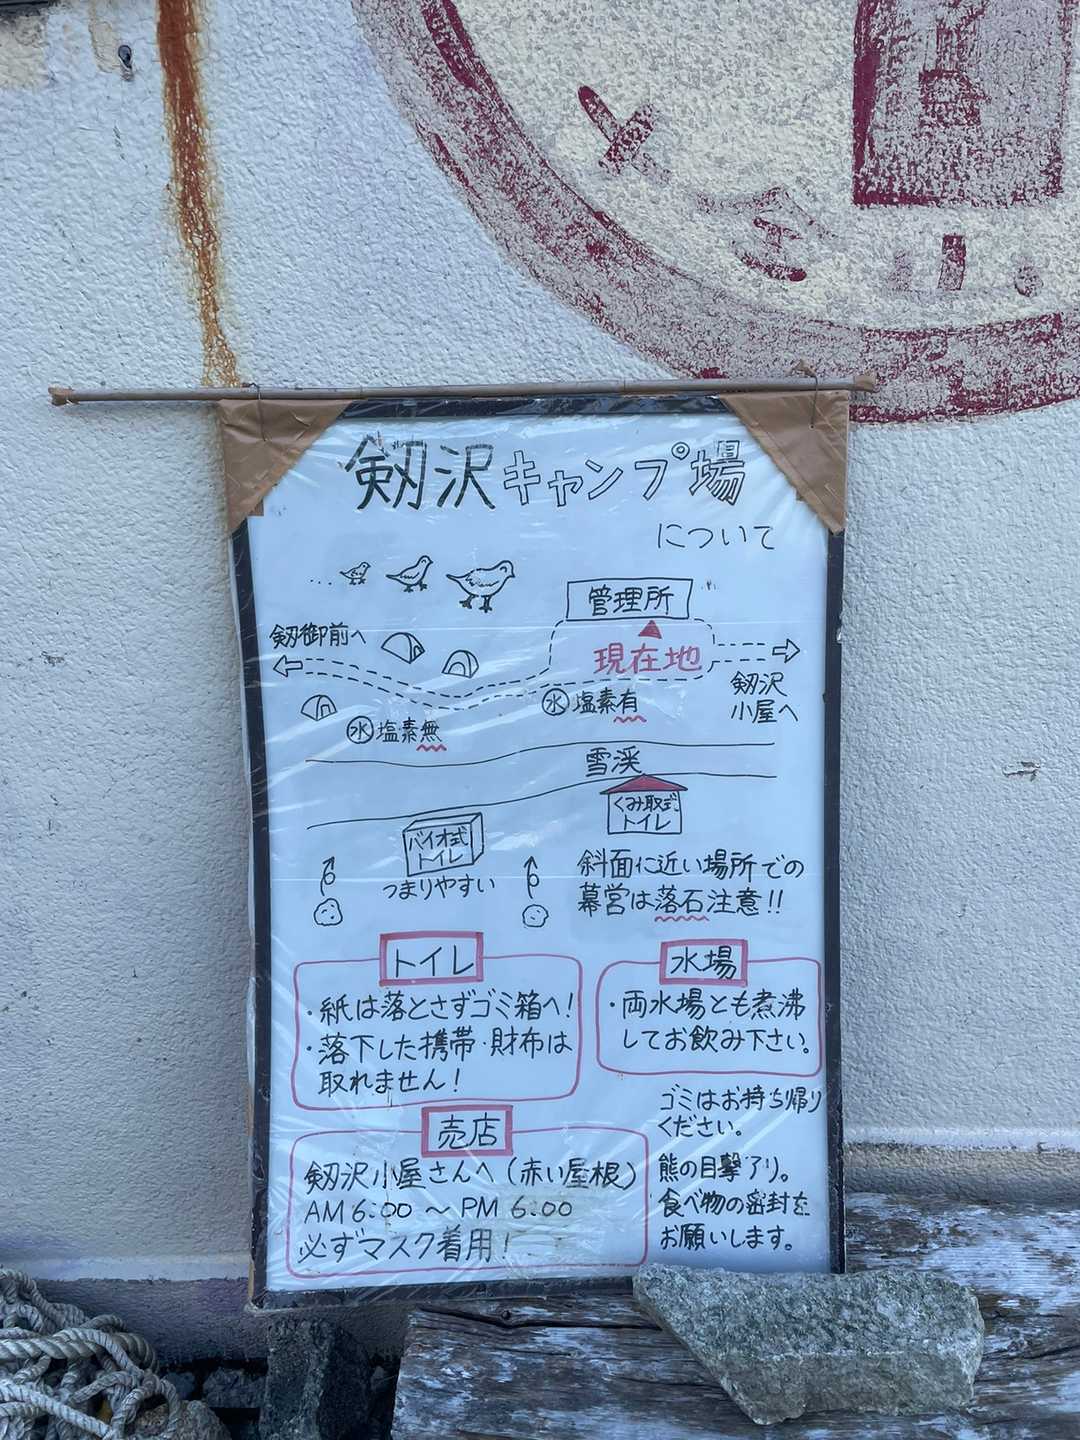 剱沢キャンプ場
について
管理所
剱御前へ
現在地
剱沢
小屋へ
水 塩素有
水 塩素無
雪渓
くみ取式
トイレ
バイオ式
トイレ
つまりやすい
斜面に近い場所での
幕営は落石注意!!
トイレ
・紙は落とさずゴミ箱へ!
・落下した携帯・財布は
取れません!
水場
・両水場とも煮沸
してお飲み下さい。
売店
剱沢小屋さんへ(赤い屋根)
AM 6:00 ～ PM 6:00
必ずマスク着用!
ゴミはお持ち帰り
ください。
熊の目撃アリ。
食べ物の密封を
お願いします。